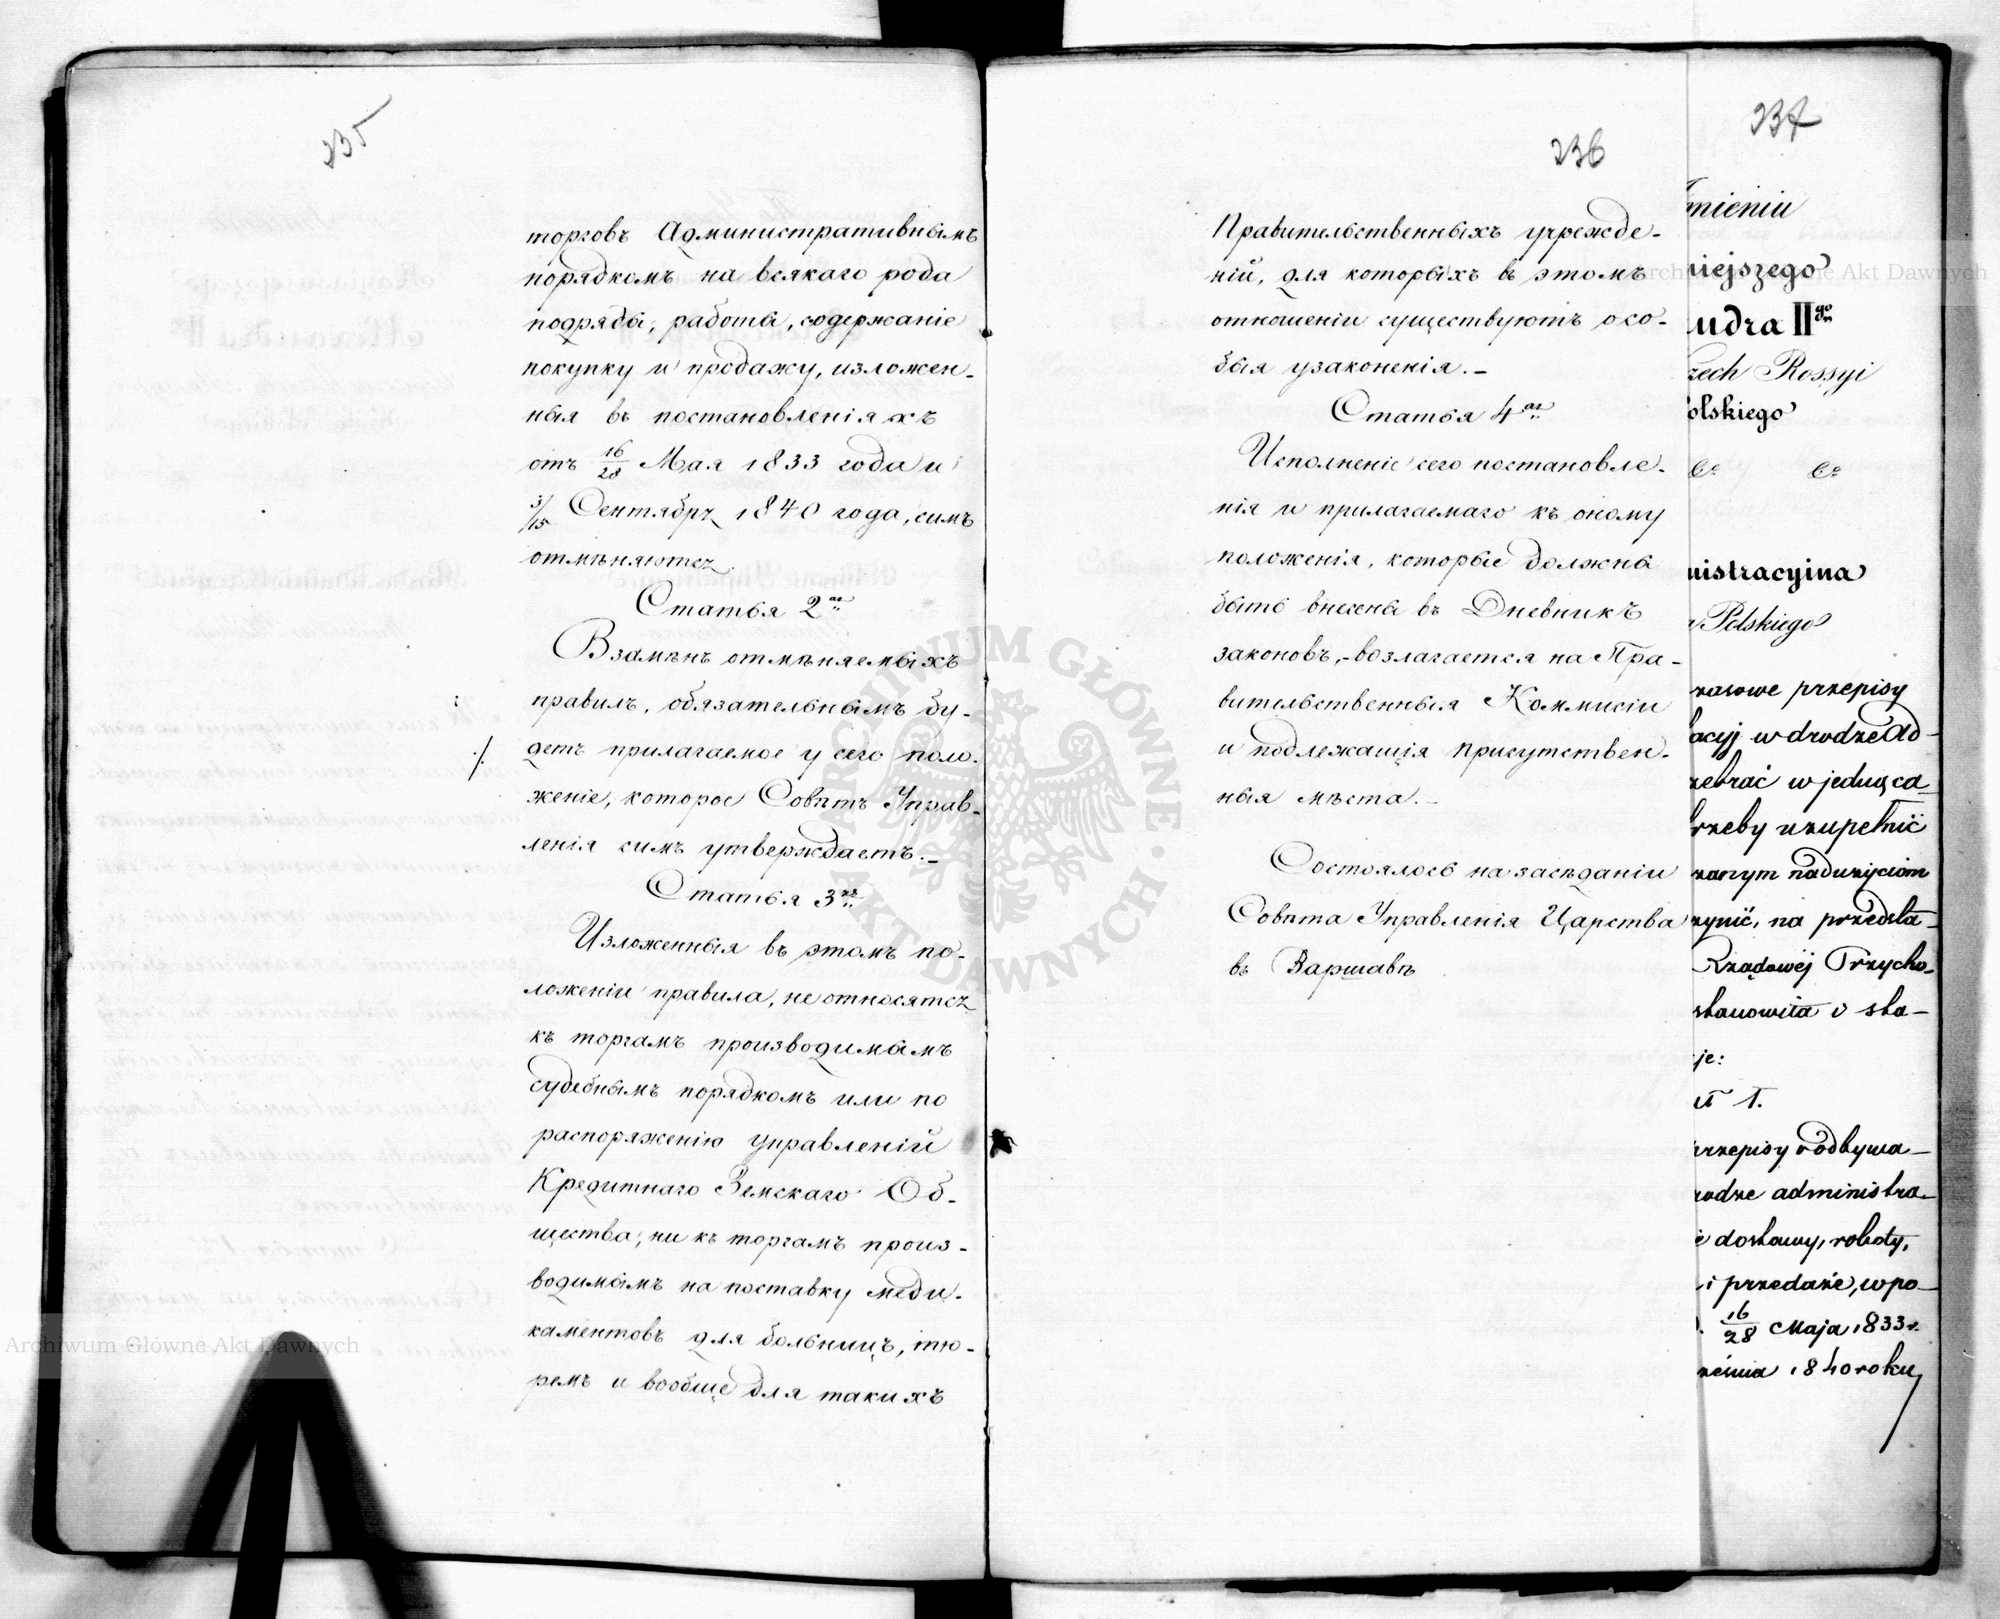 235
торговъ Административнымъ
порядкомъ на всякаго рода
подряды, работы, содержаніе
покупку и продажу, изложен-
ныя въ постановленіяхъ
отъ 16/28 Мая 1833 года и
3/15 Сентября 1840 года, симъ
отмѣняются.
Статья 2ая
Взамѣнъ отмѣняемыхъ
правилъ, обязательнымъ бу-
./. детъ прилагаемое у сего поло-
женіе, которое Совѣтъ Управ-
ленія симъ утверждаетъ.-
Статья 3ья
Изложенныя въ этомъ по-
ложеніи правила, не относятся
къ торгамъ производимымъ
судебнымъ порядкомъ или по
распоряженію управленій
Кредитнаго Земскаго Об-
щества, ни къ торгамъ произ-
водимымъ на поставку меди-
каментовъ для больницъ, тю-
ремъ и вообще для такихъ
236
Правительственныхъ учрежде-
ній, для которыхъ въ этомъ
отношеніи существуютъ осо-
быя узаконенія.-
Статья 4ая
Исполненіе сего постановле-
нія и прилагаемаго къ оному
положенія, которые должны
быть внесены въ Дневникъ
законовъ,-возлагается на Пра-
вительственныя Коммисіи
и подлежащія присутствен-
ныя мѣста.-
Состоялось на засѣданіи
Совѣта Управленія Царства
въ Варшавѣ
237
mieniu
niejszego
ndra IIgo
zech Rossyi
olskiego
&c &c
nistracyina
Polskiego
zasowe przepisy
acyj w drodze Ad-
zebrać w jedną ca-
rzeby uzupełnić
zanym nadużyciom
zynić, na przedsta-
Rządowéj Przycho-
stanowiła i sta-
je:
uł 1.
przepisy odbywa-
rodze administra-
dostawy, roboty,
i przedaże, w po-
16/28 Maja 1833 r.
ześnia 1840 roku
ARCHIWUM GŁÓWNE AKT DAWNYCH
Archiwum Główne Akt Dawnych
Archiwum Główne Akt Dawnych